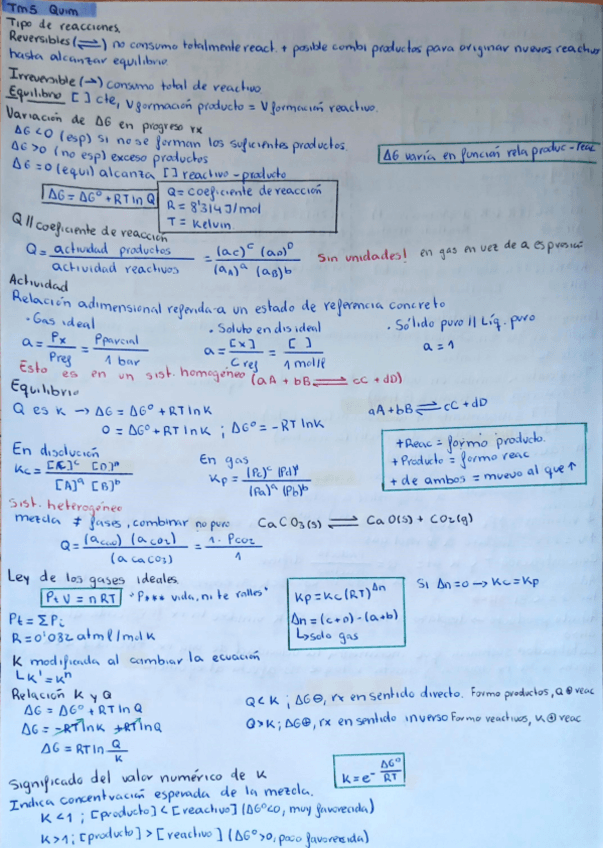 Tm5 Quim
Tipo de reacciones.
Reversibles (⇌) no consumo totalmente react. + posible combi productos para originar nuevos reactivos
hasta alcanzar equilibrio
Irreversible (→) consumo total de reactivo.
Equilibrio [ ] cte, V formación producto = V formación reactivo.
Variación de ΔG en progreso rx
ΔG<0 (esp) si no se forman los suficientes productos.
ΔG>0 (no esp) exceso productos
ΔG=0 (equi) alcanza [ ] reactivo - producto
ΔG varía en función rela produc - reac
ΔG = ΔG° + RT ln Q
Q = coeficiente de reacción
R = 8'314 J/mol
T = Kelvin.
Q // coeficiente de reacción
Q = actividad productos / actividad reactivos = (ac)^c (aD)^D / (aA)^a (aB)^b Sin unidades! en gas en vez de a es presión
Actividad
Relación adimensional referida a un estado de referencia concreto
· Gas ideal · Soluto en dis ideal · Sólido puro // Líq. puro
a = Px / Pref = Pparcial / 1 bar a = [x] / Cref = [ ] / 1 mol/l a = 1
Esto es en un sist. homogéneo (aA + bB ⇌ cC + dD)
Equilibrio
Q es K → ΔG = ΔG° + RT ln K aA + bB ⇌ cC + dD
0 = ΔG° + RT ln K ; ΔG° = - RT ln K
+ Reac = formo producto.
+ Producto = formo reac
+ de ambos = muevo al que ↑
En disolución En gas
Kc = [C]^c [D]^D / [A]^a [B]^b Kp = (Pc)^c (Pd)^d / (Pa)^a (Pb)^b
Sist. heterogéneo
mezcla ≠ fases, combinar no puro CaCO3(s) ⇌ CaO(s) + CO2(g)
Q = (aCaO) (aCO2) / (aCaCO3) = 1 · PCO2 / 1
Ley de los gases ideales.
Pt V = n RT "P*** vida, ni te ralles"
Pt = ΣPi
R = 0'082 atm l / mol K
Kp = Kc (RT)^Δn
Δn = (c+d) - (a+b)
↳ solo gas
Si Δn=0 → Kc = Kp
K modificada al cambiar la ecuación
↳ K' = K^n
Relación K y Q
ΔG = ΔG° + RT ln Q
ΔG = -RT ln K + RT ln Q
ΔG = RT ln Q/K
Q < K ; ΔG⊖, rx en sentido directo. Formo productos, Q⊕ reac
Q > K ; ΔG⊕, rx en sentido inverso Formo reactivos, K⊕ reac
Significado del valor numérico de K
K = e^- ΔG°/RT
Indica concentración esperada de la mezcla.
K < 1 ; [producto] < [reactivo] (ΔG°<0, muy favorecida)
K > 1 ; [producto] > [reactivo] (ΔG°>0, poco favorecida)